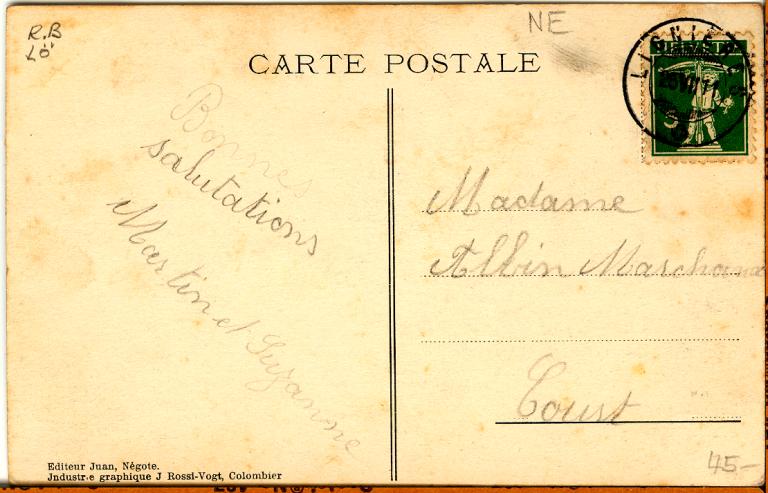 R.B
LÖ
NE
CARTE POSTALE
LIGNIÈRES
HELVETIA
5
Bonnes
salutations
Martin et Suzanne
Madame
Albin Marchand
Court
Editeur Juan, Négote.
Jndustrie graphique J Rossi-Vogt, Colombier
45-